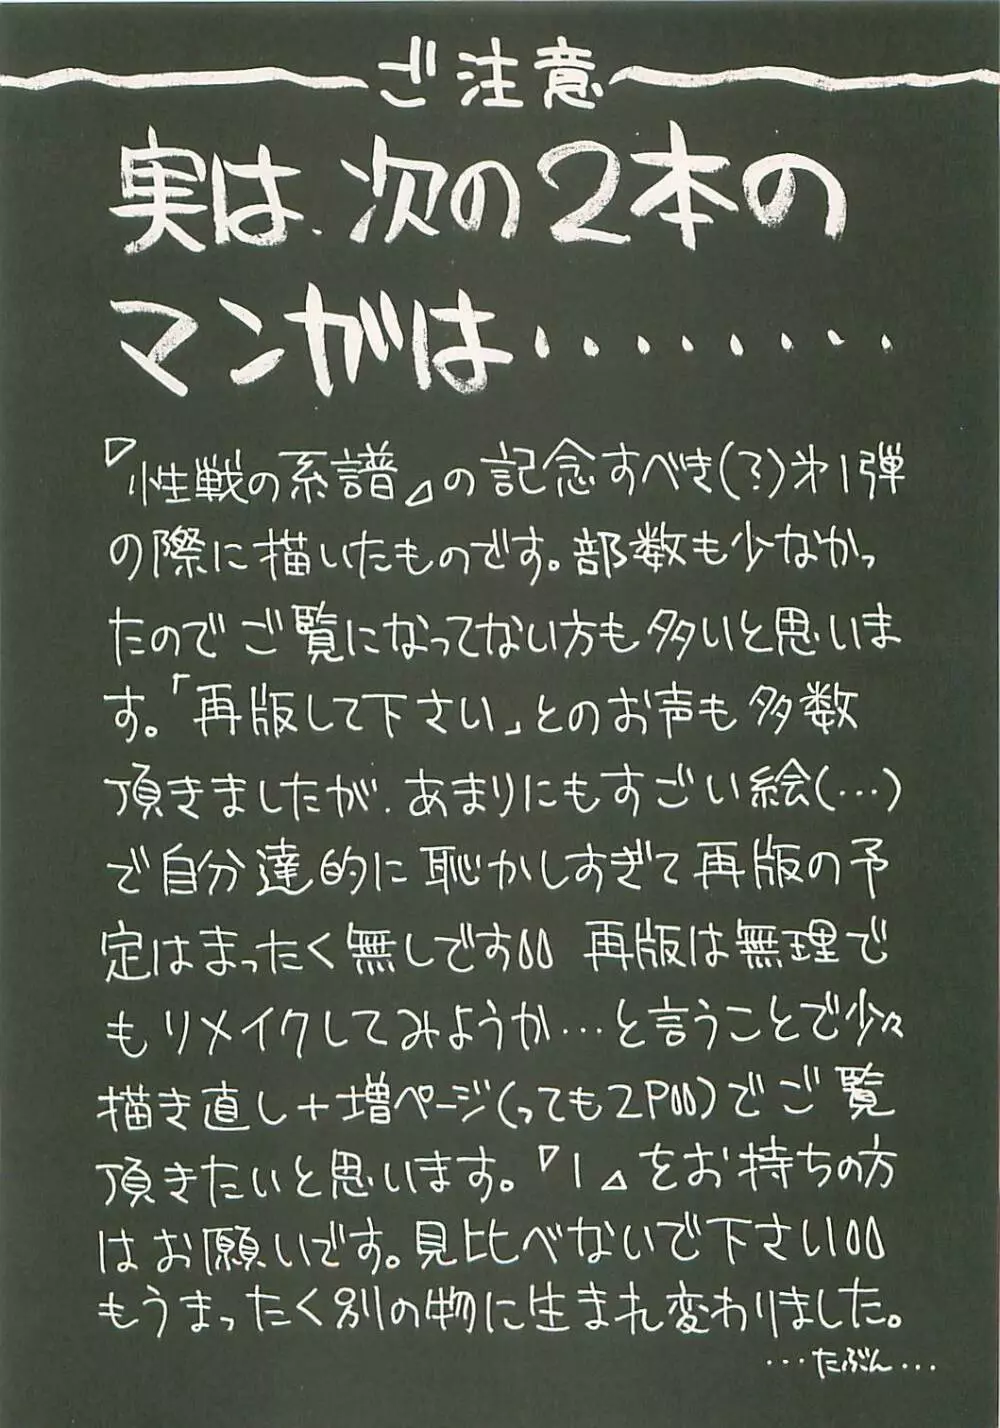 ご注意
実は、次の2本の
マンガは・・・・・・・・
『性戦の系譜』の記念すべき(?)第1弾
の際に描いたものです。部数も少なかっ
たのでご覧になってない方も多いと思いま
す。「再版して下さい」とのお声も多数
頂きましたが、あまりにもすごい絵(…)
で自分達的に恥かしすぎて再版の予
定はまったく無しです 再版は無理で
もリメイクしてみようか…と言うことで少々
描き直し+増ページ(っても2P)でご覧
頂きたいと思います。『1』をお持ちの方
はお願いです。見比べないで下さい
もうまったく別の物に生まれ変わりました。
…たぶん…